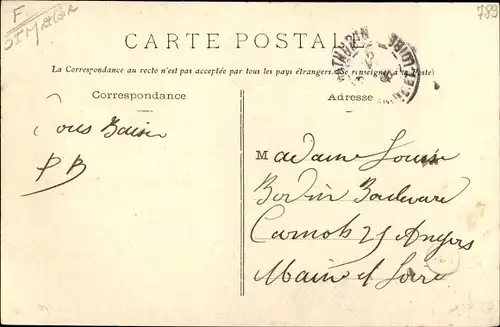 F
St Mathur
789
CARTE POSTALE
La Correspondance au recto n'est pas acceptée par tous les pays étrangers. (Se renseigner à la Poste)
Correspondance
Adresse
Bons Baiser
P B
Madame Louise
Bodin Boulevare
Carnot 25 Angers
Maine et Loire